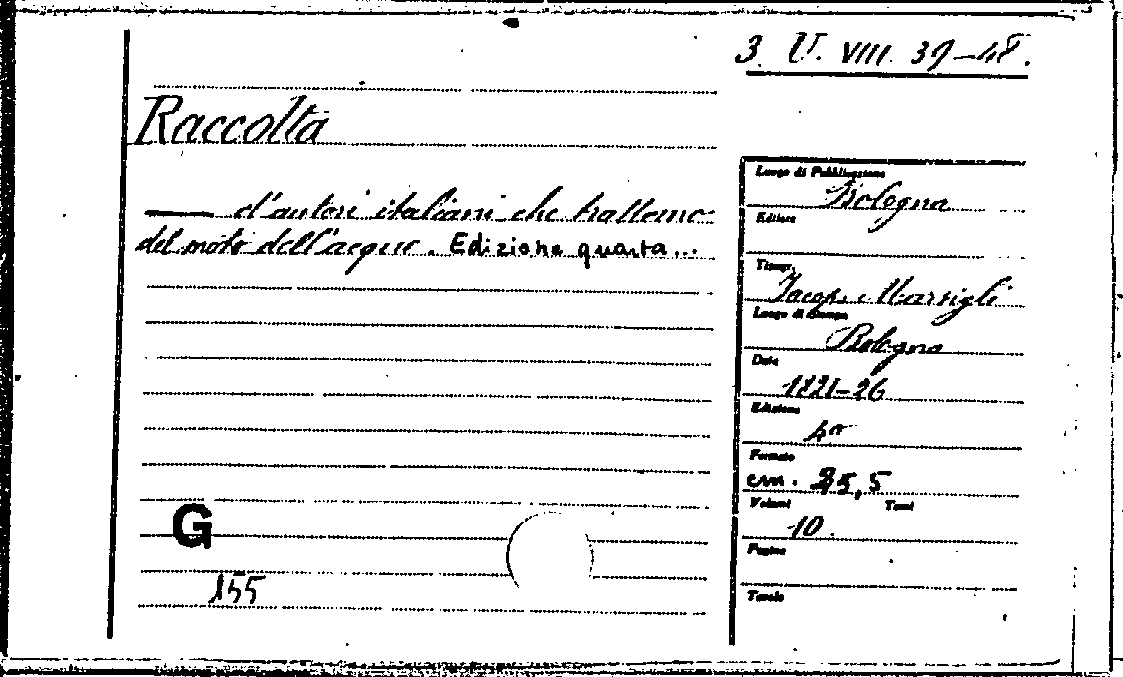 3. U. VIII. 39-48.
Raccolta
d'autori italiani che trattano
del moto dell'acque. Edizione quarta...
Luogo di Pubblicazione
Bologna
Editore
Tipogr.
Jacopo Marsigli
Luogo di Stampa
Bologna
Data
1821-26
Edizione
4ª
Formato
cm. 25,5
Volumi Tomi
10.
Pagine
Tavole
G
155